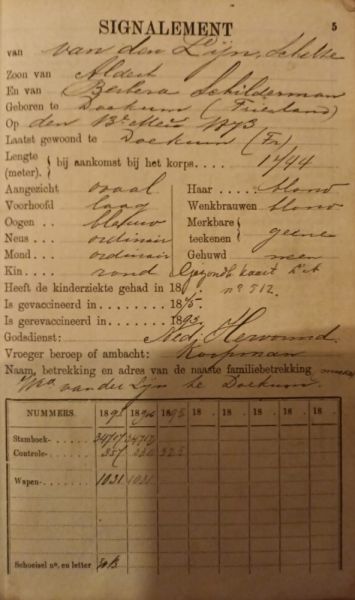 SIGNALEMENT 5
van van den Lijn, Schelte
Zoon van Aldert
En van Berbera Schilderman
Geboren te Dockum (Friesland)
Op den 13e Mei 1873
Laatst gewoond te Dockum (Fr)
Lengte (meter). bij aankomst bij het korps 1744
Aangezicht ovaal Haar blond
Voorhoofd laag Wenkbrauwen blond
Oogen blauw Merkbare teekenen geene
Neus ordinair
Mond ordinair Gehuwd neen
Kin rond Gezondh. kaart
Heeft de kinderziekte gehad in 18 no 512.
Is gevaccineerd in 1875.
Is gerevaccineerd in 1893
Godsdienst: Ned. Hervormd.
Vroeger beroep of ambacht: Koopman
Naam, betrekking en adres van de naaste familiebetrekking
van der Lijn te Dockum.
NUMMERS. 189 189 189 18 18 18 18
Stamboek
Controle
Wapen 1031 1031
Schoeisel no. en letter